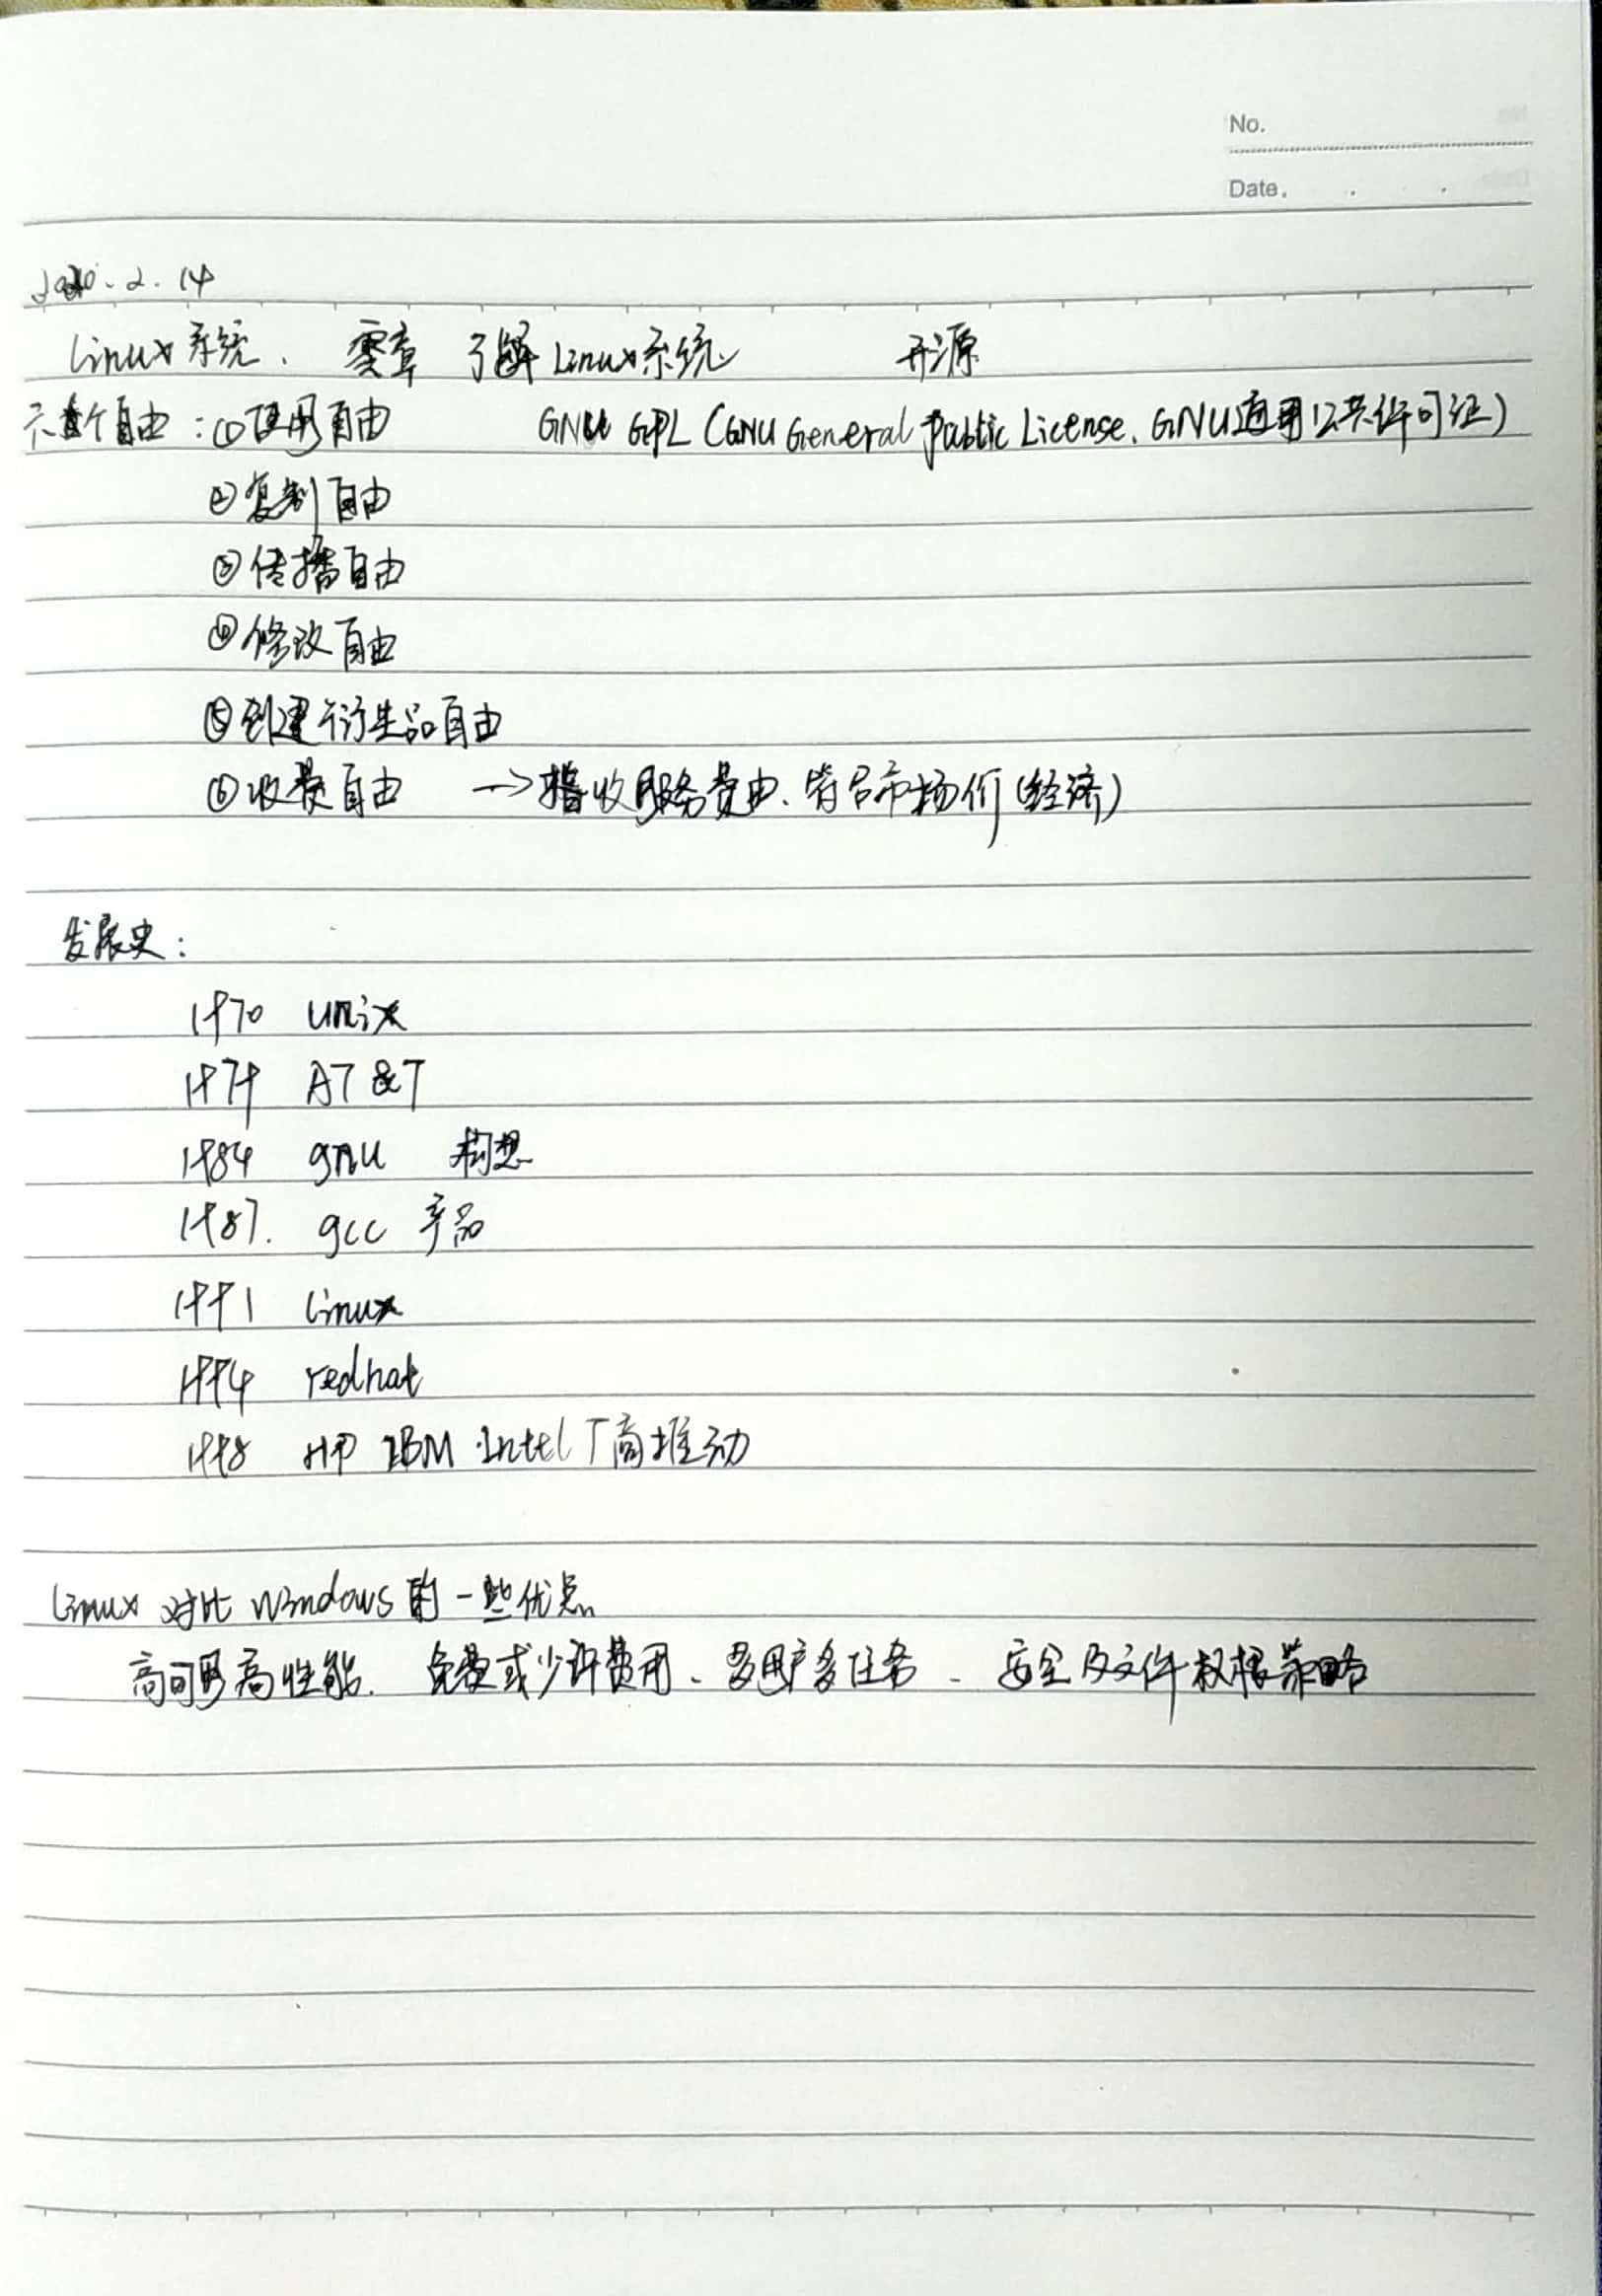 No.
Date.
2020.2.14
Linux系统、零章 了解Linux系统 开源
六个自由：①使用自由 GNU GPL（GNU General Public License、GNU通用公共许可证）
②复制自由
③传播自由
④修改自由
⑤创建衍生品自由
⑥收费自由 →指收服务费由、符合市场价（经济）
发展史：
1970 unix
1979 AT&T
1984 gnu 构想
1987. gcc 产品
1991 linux
1994 redhat
1998 HP IBM Intel 厂商推动
Linux 对比 windows 的一些优点
高可用高性能、免费或少许费用、多用户多任务、安全及文件权限策略